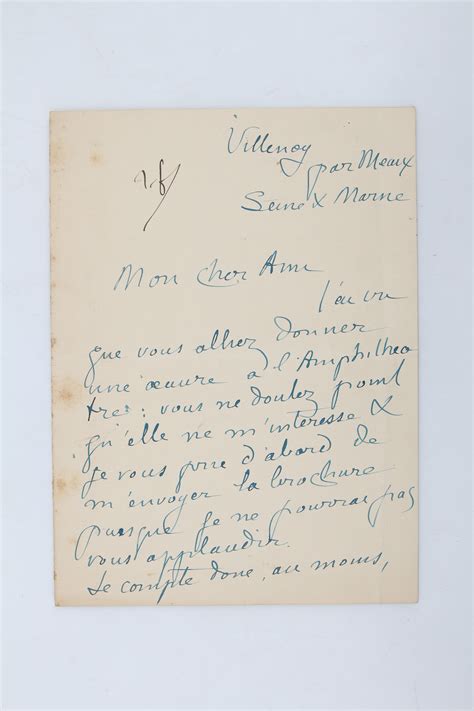 Villenoy
par Meaux
Seine & Marne
Mon cher Ami
J'ai vu
que vous allez donner
une œuvre à l'Amphithea
tre : vous ne doutez point
qu'elle ne m'intéresse &
je vous prie d'abord de
m'envoyer la brochure
puisque je ne pourrai pas
vous applaudir.
Je compte donc, au moins,